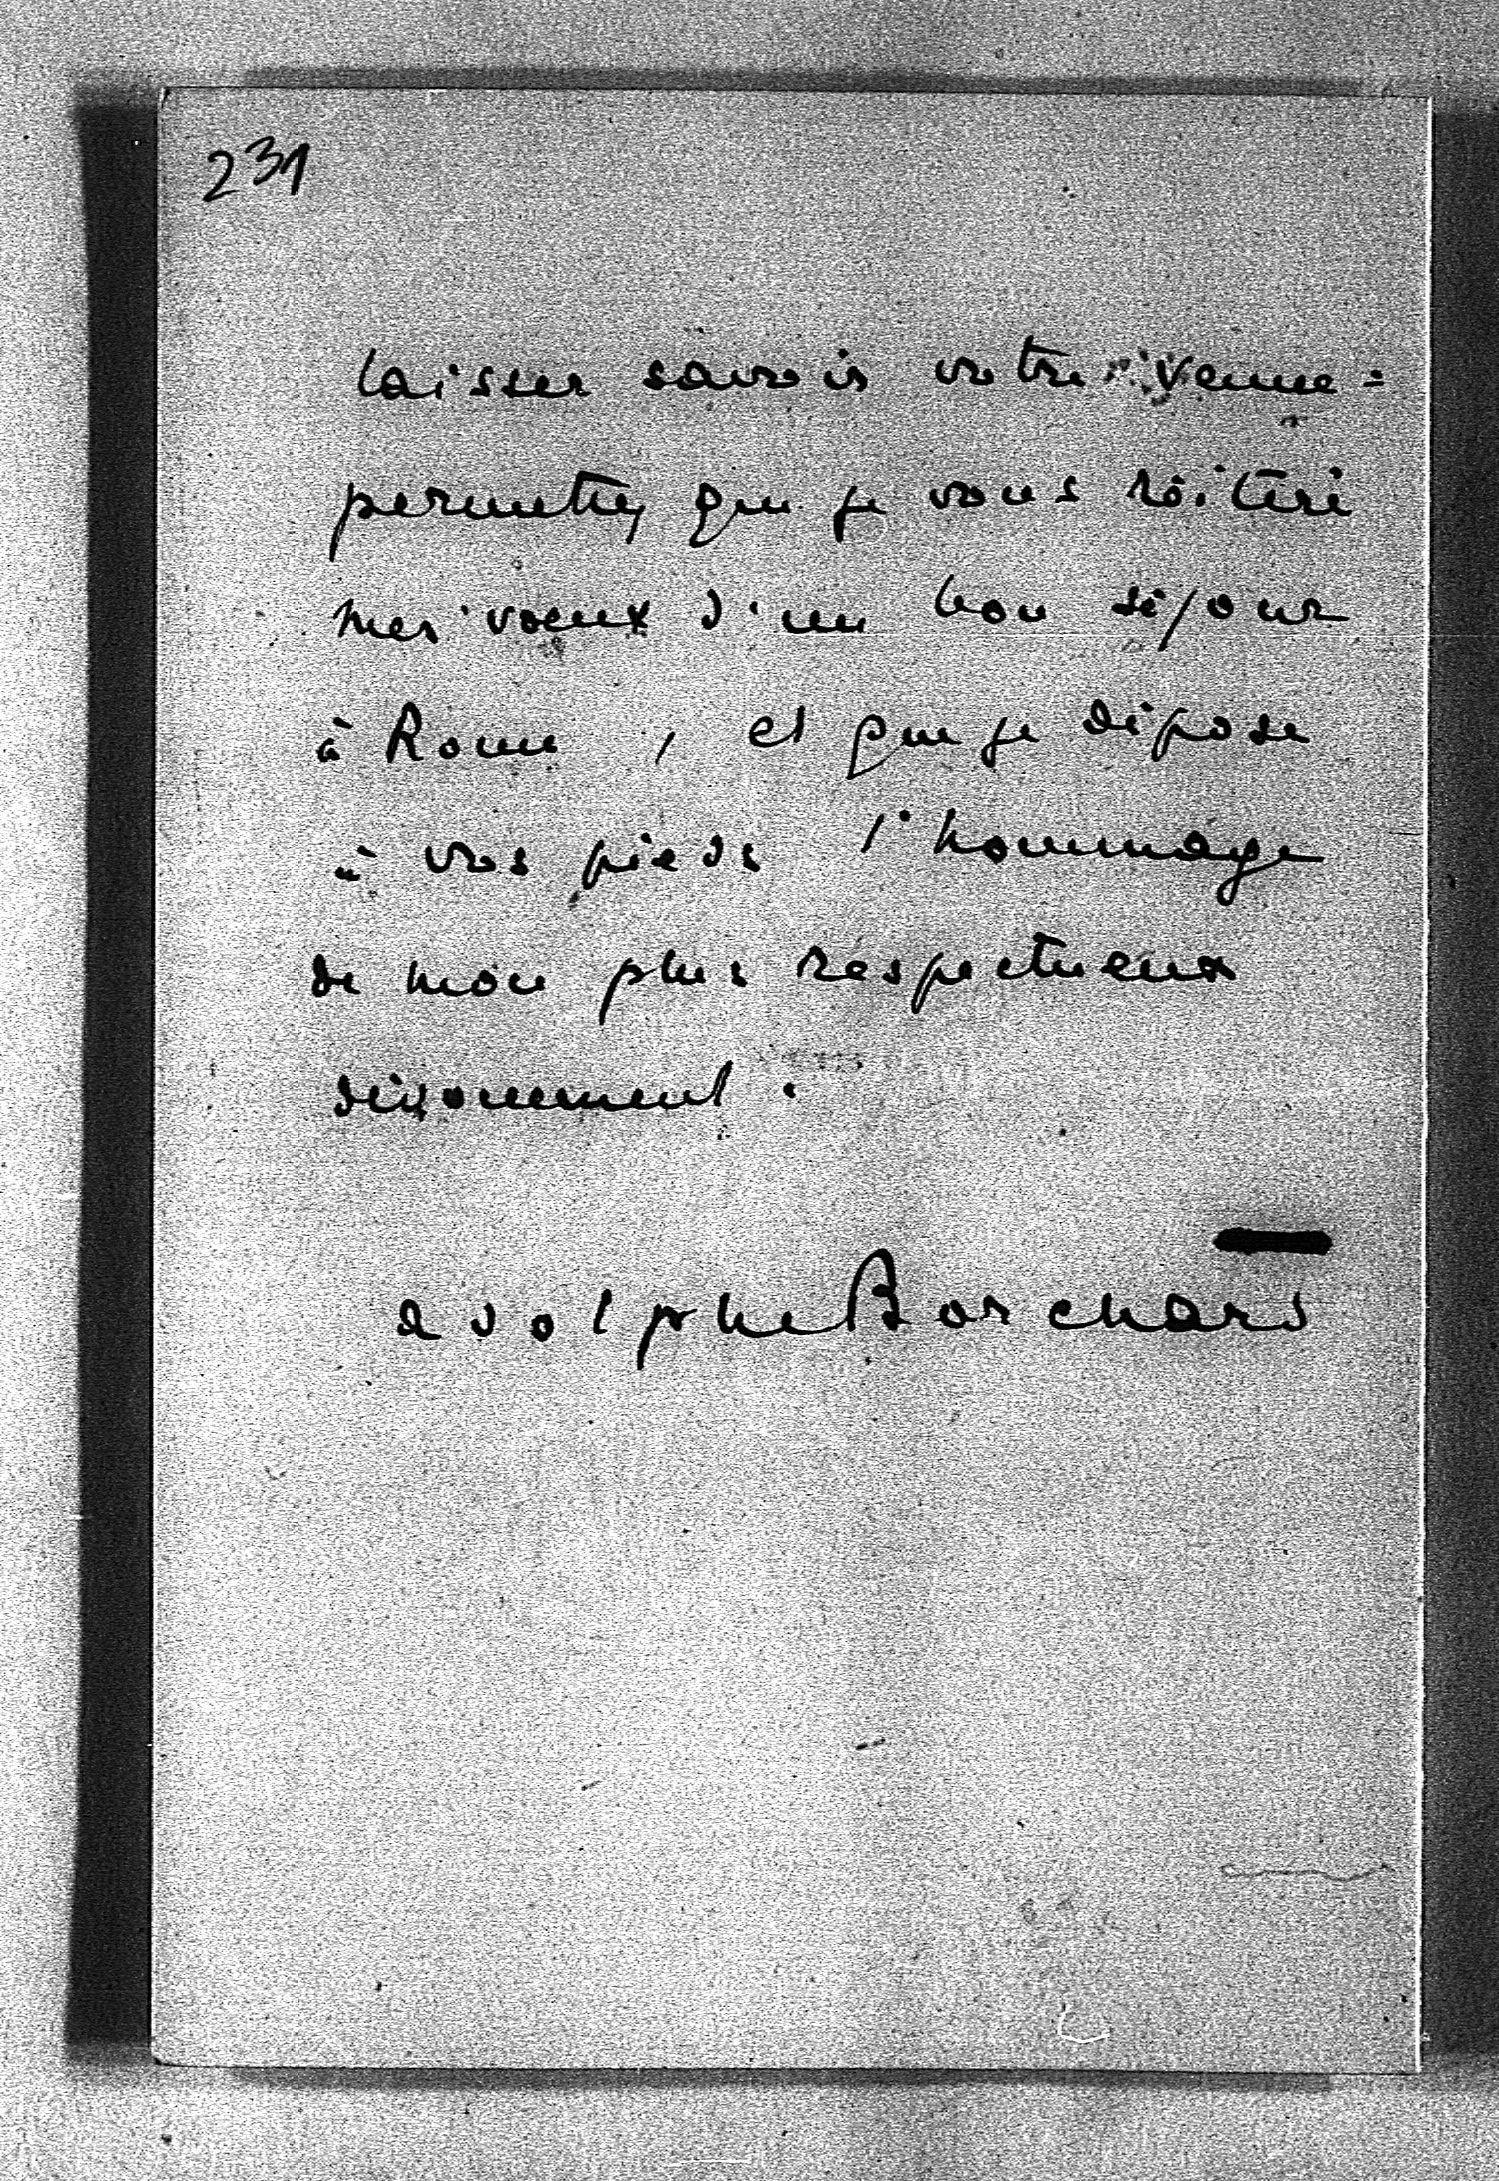 231
laisser savoir votre venue =
permettez que je vous réitère
mes voeux d'un bon séjour
à Rome, et que je dépose
à vos pieds l'hommage
de mon plus respectueux
dévouement.
adolphe Borchard